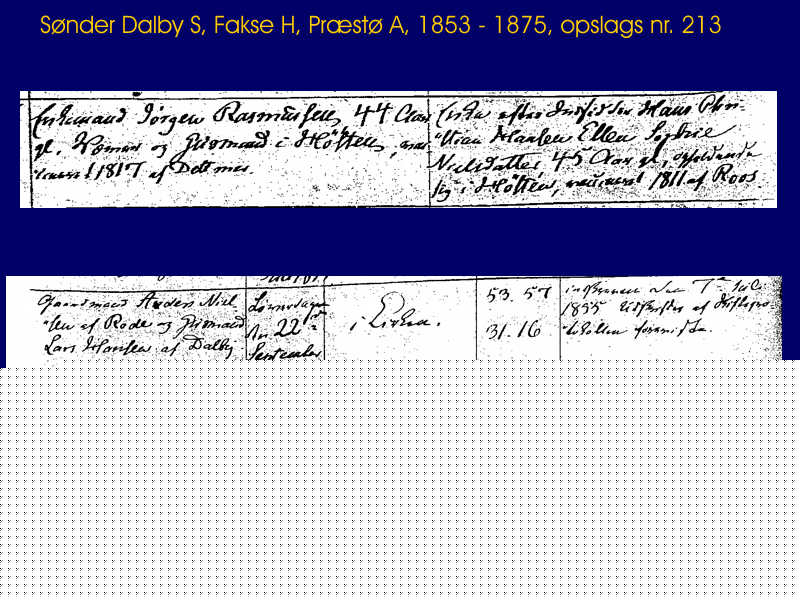 Sønder Dalby S, Fakse H, Præstø A, 1853 - 1875, opslags nr. 213
Enkemand Jørgen Rasmussen, 44 Aar
gl., og Huusmand i Høsten, vac-
cineret 1817 af Dettmer.
Enke efter Indsidder Hans Chri-
stian Hansen Ellen Sophie
Nielsdatter 45 Aar gl., opholdende
sig i Høsten, vaccineret 1811 af Roos.
Gaardmand Anders Niel-
sen af Rode og Huusmand
Lars Hansen af Dalby
Løverdagen
den 22de
September
i Kirken.
53. 57
31. 16
1855